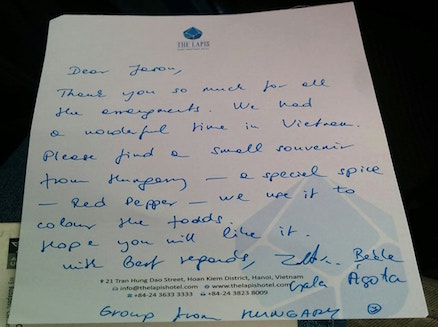 THE LAPIS
Dear Jason,
Thank you so much for all
the arrangments. We had
a wonderful time in Vietnam.
Please find a small souvenir
from Hungary – a special spice
– Red Pepper – we use it to
colour the foods.
Hope you will like it.
with Best regards, Zoltán Bebbe
Gyula Ágota
21 Tran Hung Dao Street, Hoan Kiem District, Hanoi, Vietnam
info@thelapishotel.com www.thelapishotel.com
+84-24 3633 3333 +84-24 3823 8009
Group from HUNGARY